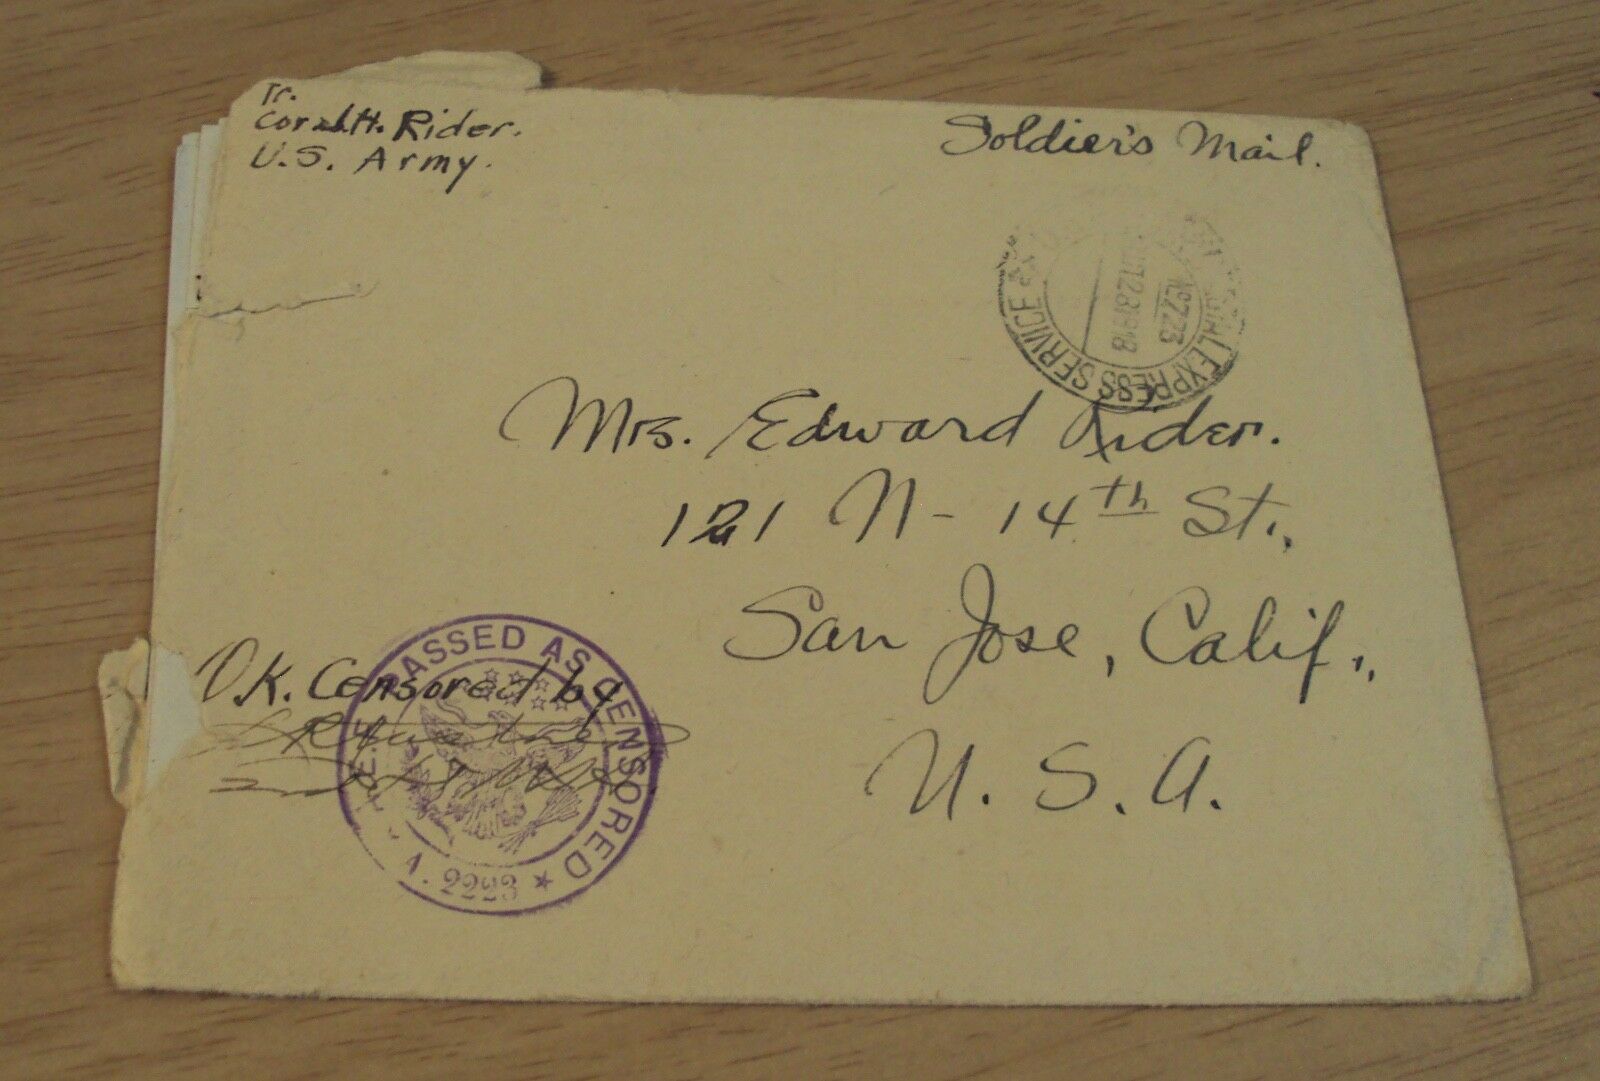 Fr.
Corp. H. Rider.
U.S. Army.
Soldier's Mail.
EXPRESS SERVICE
No 723
Mrs. Edward Rider.
121 N - 14th St.,
San Jose, Calif.,
U. S. A.
O.K. Censored by
PASSED AS CENSORED
A. 2223